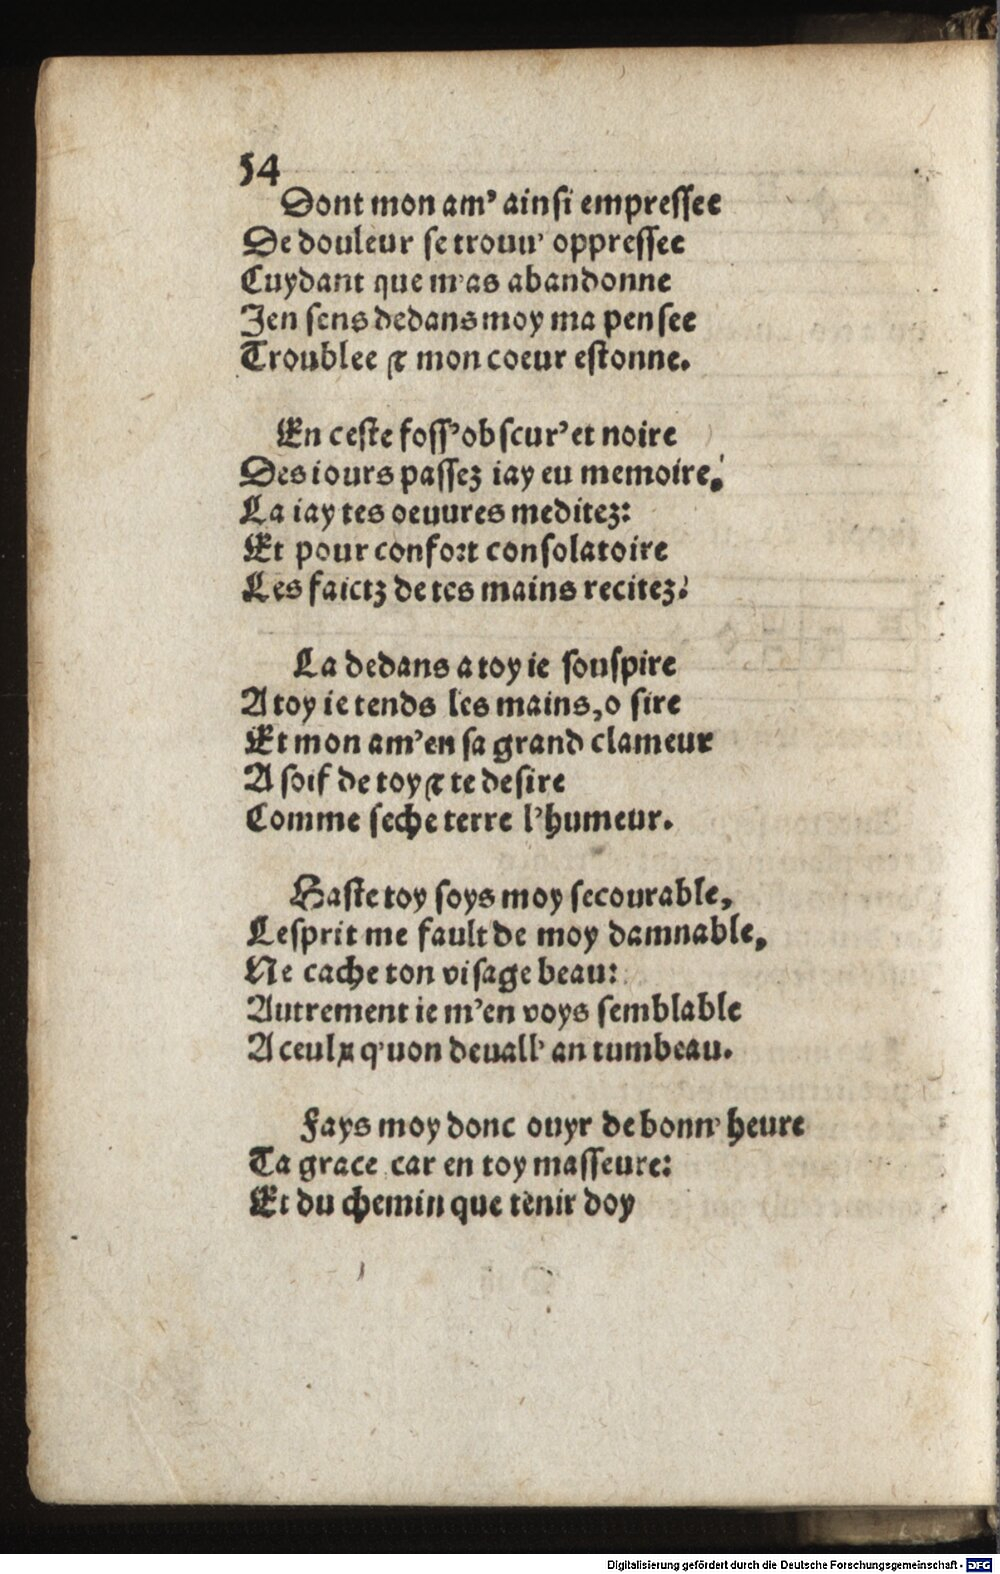 54
Dont mon am' ainsi empressee
De douleur se trouu' oppressee
Cuydant que m'as abandonne
Jen sens dedans moy ma pensee
Troublee & mon coeur estonne.
En ceste foss'obscur'et noire
Des iours passez iay eu memoire,
La iay tes oeuures meditez:
Et pour confort consolatoire
Les faictz de tes mains recitez:
La dedans a toy ie souspire
A toy ie tends les mains,o sire
Et mon am'en sa grand clameur
A soif de toy & te desire
Comme seche terre l'humeur.
Haste toy soys moy secourable,
Lesprit me fault de moy damnable,
Ne cache ton visage beau:
Autrement ie m'en voys semblable
A ceulx q'uon deuall' an tumbeau.
Fays moy donc ouyr de bonn' heure
Ta grace car en toy masseure:
Et du chemin que tenir doy
Digitalisierung gefördert durch die Deutsche Forschungsgemeinschaft - DFG